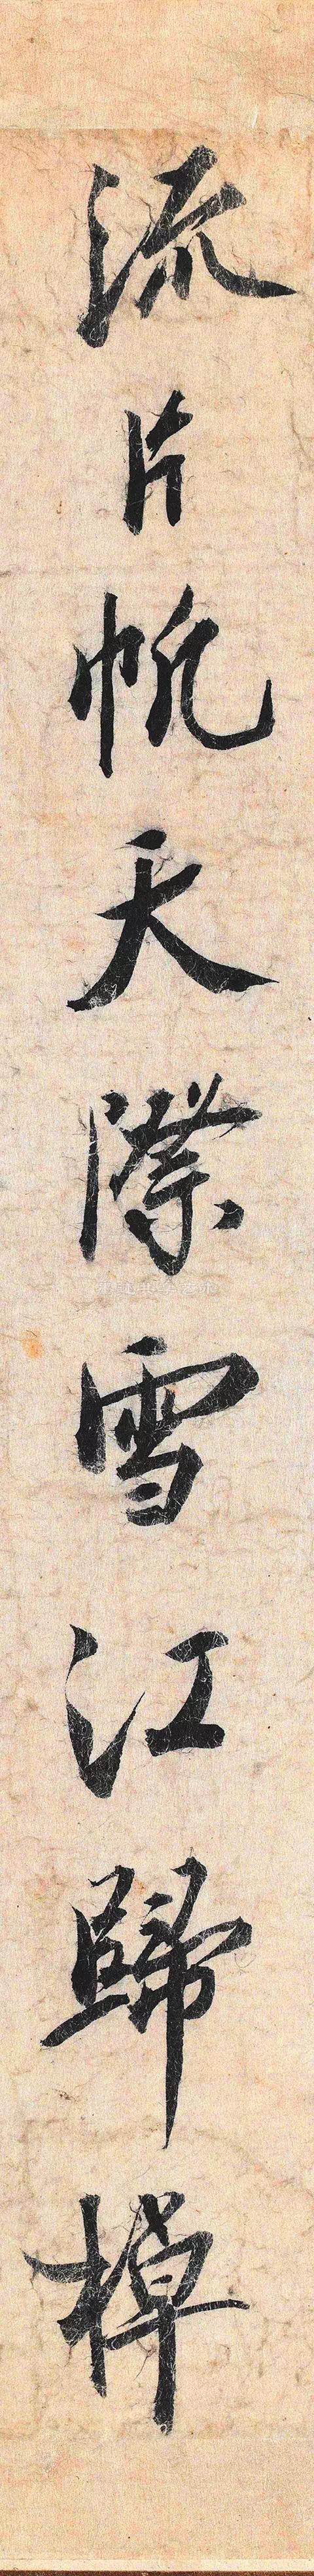 流片帆天際雪江歸棹